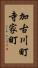 加古川町
寺家町